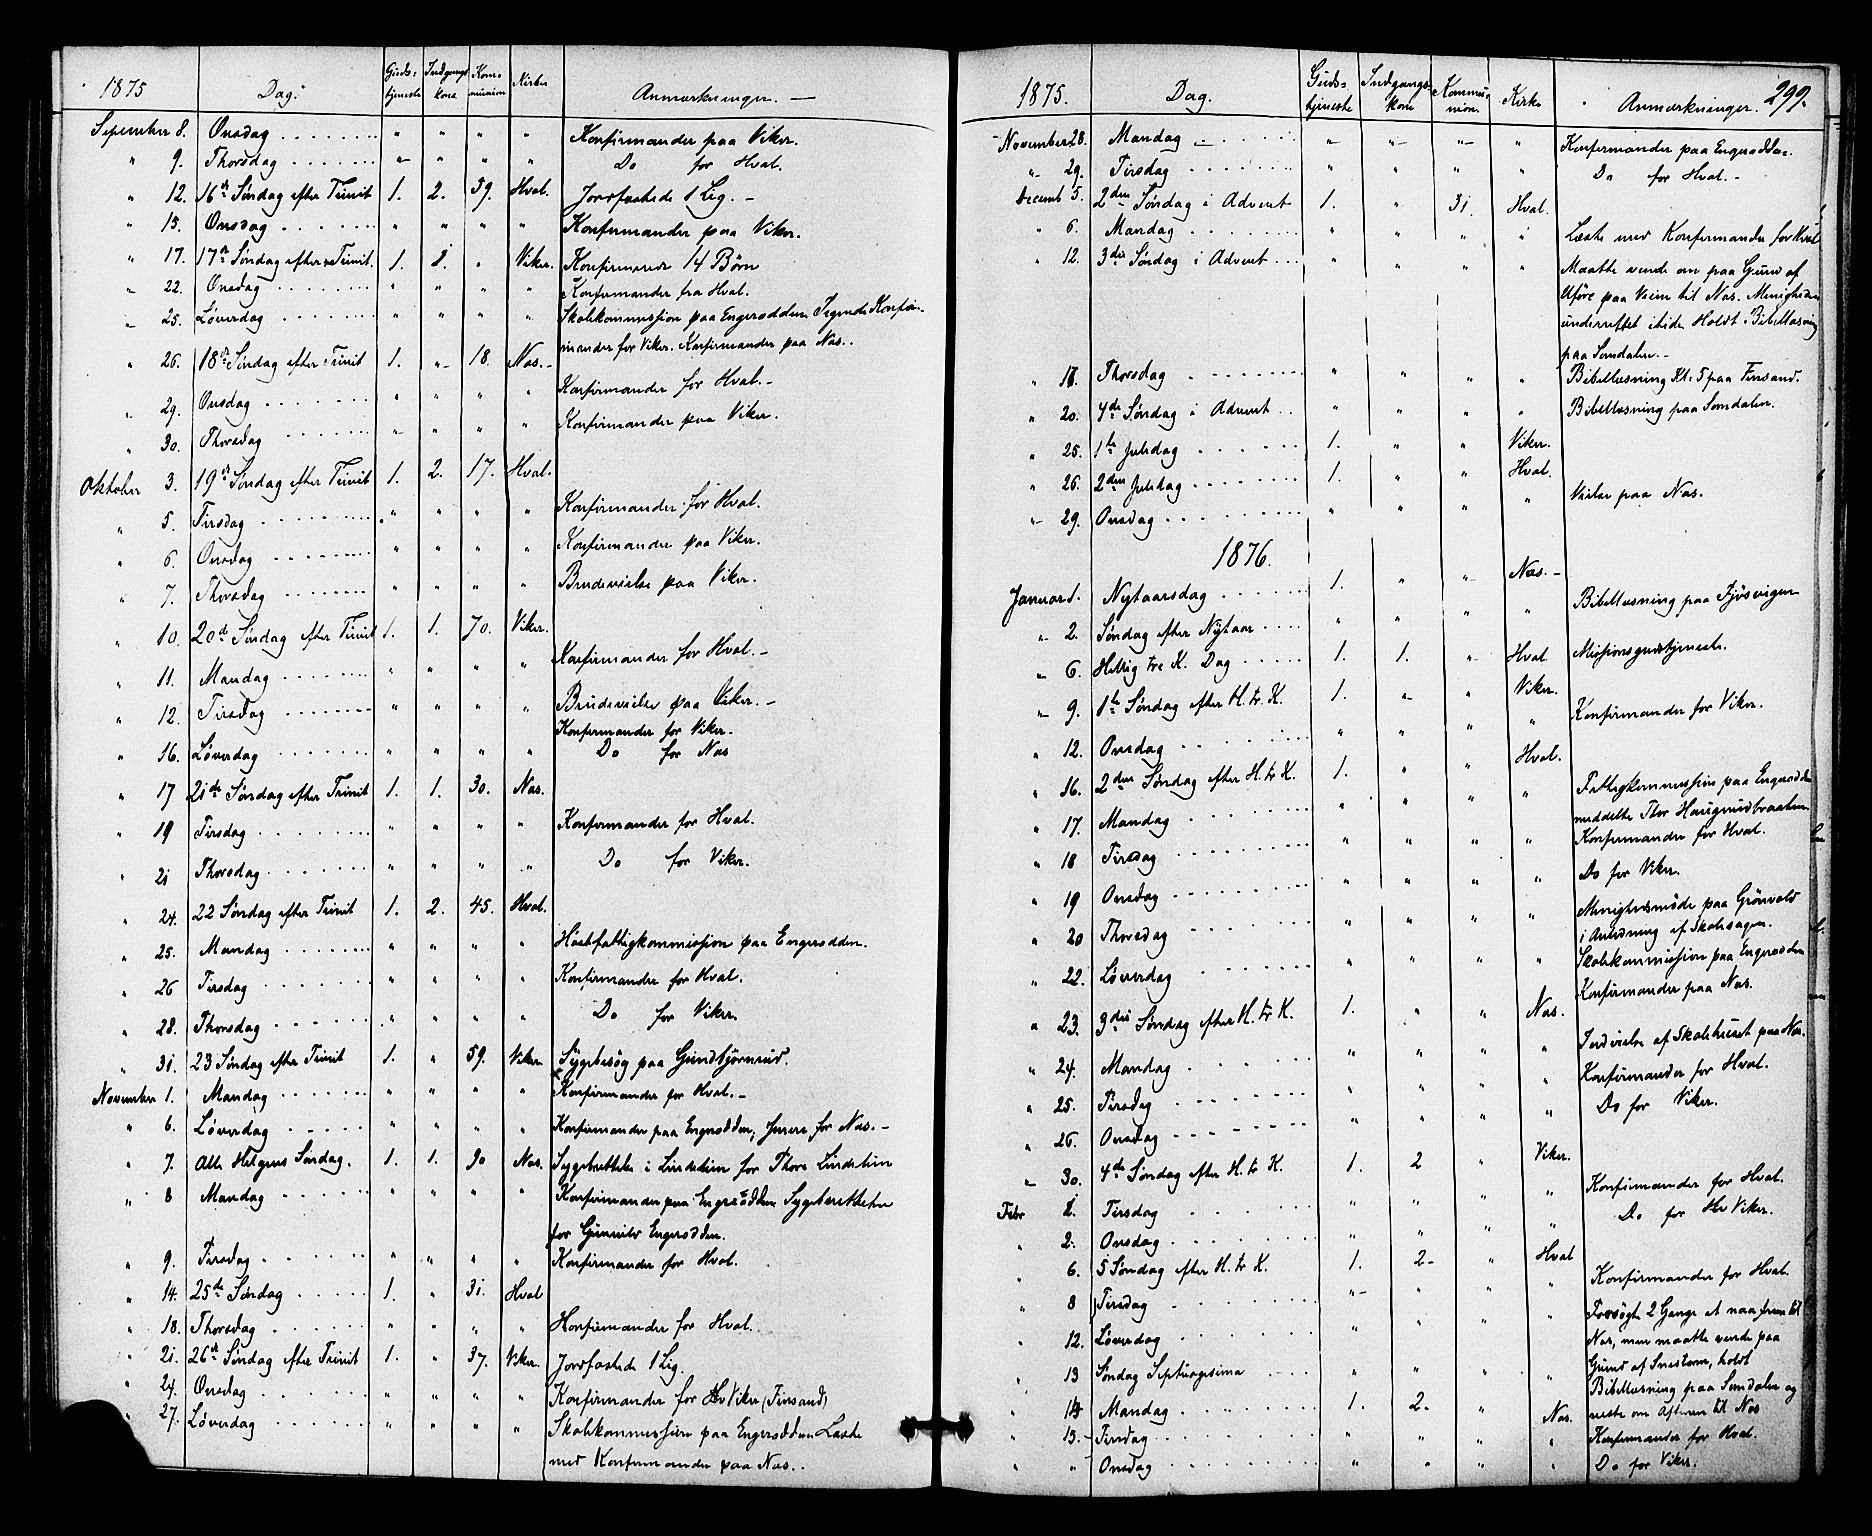 1875 Dag. Guds-tjeneste Indgangs-kone Kom-munion Kirke Anmærkninger. —
September 8. Onsdag . . . . " " " " Konfirmander paa Viker.
" 9. Thorsdag . . . . " " " " Do for Hval.
" 12. 16de Søndag efter Trinit 1. 2. 59. Hval. Jordfæstede 1 Lig. –
" 15. Onsdag . . . . " " " " Konfirmander paa Viker.
" 17. 17de Søndag efter Trinit. 1. 2. " Viker. Konfirmerede 14 Børn
" 22. Onsdag . . . . " " " " Konfirmander fra Hval.
" 25. Løverdag . . . . " " " " Skolekommission paa Engerodden Tegende Konfir-
mander for Viker. Konfirmander paa Næs.
" 26. 18de Søndag efter Trinit 1. " 18. Næs. –
" 29. Onsdag . . . . " " " " Konfirmander for Hval. –
" 30. Thorsdag . . . . " " " " Konfirmander paa Viker.
Oktober 3. 19de Søndag efter Trinit 1. 2. 17. Hval.
" 5. Tirsdag . . . . " " " " Konfirmander for Hval.
" 6. Onsdag . . . . " " " " Konfirmander paa Viker.
" 7. Thorsdag . . . . " " " " Brudevielse paa Viker.
" 10. 20de Søndag efter Trinit 1. 1. 70. Viker.
" 11. Mandag . . . . " " " " Konfirmander for Hval. –
" 12. Tirsdag . . . . " " " " Brudevielse paa Viker. –
Konfirmander for Viker.
" 16. Løverdag . . . . " " " " Do for Næs
" 17 21de Søndag efter Trinit 1. 1. 30. Næs.
" 19 Tirsdag . . . . " " " " Konfirmander for Hval.
" 21 Thorsdag . . . . " " " " Do for Viker.
" 24. 22 Søndag efter Trinit 1. 2. 45. Hval.
" 25. Mandag . . . . " " " " Høstfattigkommission paa Engerodden.
" 26 Tirsdag . . . . " " " " Konfirmander for Hval.
" 28. Thorsdag . . . . " " " " Do for Viker.
" 31. 23 Søndag efter Trinit 1. " 59. Viker Sygebesøg paa Gundbjørnrud.
November 1. Mandag . . . . " " " " Konfirmander for Hval. –
" 6. Løverdag . . . . " " " " Konfirmander paa Engerodden, for Næs. –
" 7. Alle Helgens Søndag. 1. 1. 90 Næs. Sygeberettelse i Lindelien for Thore Lindelien
" 8 Mandag . . . . " " " " Konfirmander paa Engerodden Sygeberettelse
for Gunnild Engerodden.
" 9. Tirsdag . . . . " " " " Konfirmander for Hval.
" 14. 25de Søndag . . . . 1. " 31. Hval
" 18. Thorsdag . . . . " " " " Konfirmander for Hval.
" 21. 26de Søndag efter Trinit 1. " 37. Viker. Jordfæstede 1 Lig.
" 24. Onsdag . . . . " " " " Konfirmander for Viker (Finsand)
" 27. Løverdag . . . . " " " " Skolekommission paa Engerodden Læste
med Konfirmander paa Næs.
1875. Dag. Guds-tjeneste Indgangs-kone Kommu-nion. Kirke Anmærkninger. 299.
November 28. Mandag . . . . " " " " Konfirmander paa Engerodden.
" 29. Tirsdag . . . . " " " " Do for Hval. –
Decemb 5. 2den Søndag i Advent 1. " 31. Hval.
" 6. Mandag . . . . " " " " Læste med Konfirmander for Hval
" 12. 3die Søndag i Advent . . . " " " " Maatte vende om paa Grund af
Uføre paa Veien til Næs. Menigheden
underrettet itide Holdt Bibellæsning
paa Sørdalen. –
" 16. Thorsdag . . . . " " " " Bibellæsning Kl: 5 paa Finsand.
" 20. 4de Søndag i Advent . . " " " " Bibellæsning paa Sørdalen.
" 25. 1te Juledag . . . . 1. " " Viker.
" 26. 2den Juledag . . . . 1. " " Hval.
" 29. Onsdag . . . . " " " " Vielse paa Næs.
1876.
Januar 1. Nytaarsdag . . . . 1. " " Næs. –
" 2. Søndag efter Nytaar . . . . " " " " Bibellæsning paa
" 6. Hellig tre K. Dag . . . . 1. 1. " Hval Missionsgudstjeneste.
" 9. 1te Søndag efter H. tr. K. 1. " " Viker.
" 12. Onsdag . . . . " " " " Konfirmander for Viker.
" 16. 2den Søndag efter H. tr K. 1. " " Hval.
" 17. Mandag . . . . " " " " Fattigkommission paa Engerodden
meddelte Thor Haugerudbraaten
" 18 Tirsdag . . . . " " " " Konfirmander for Hval.
" 19 Onsdag . . . . " " " " Do for Viker.
" 20 Thorsdag . . . . " " " " Menighedsmøde paa Grønvold
i Anledning af Skolesagen.
" 22. Løverdag . . . . " " " " Skolekommission paa Engerodden
Konfirmander paa Næs.
" 23. 3die Søndag efter H. tr K. 1. " " Næs.
" 24. Mandag . . . " " " " Indvielse af Skolehuset paa Næs.
" 25. Tirsdag . . . . " " " " Konfirmander for Hval.
" 26. Onsdag . . . . " " " " Do for Viker.
" 30. 4de Søndag efter H. tr K. 1. 2 " Viker.
Febr 1. Tirsdag . . . . " " " " Konfirmander for Hval.
" 2. Onsdag . . . . " " " " Do for Viker.
" 6. 5 Søndag efter H. tr K. 1. 2 – " Hval
" 8 Tirsdag . . . . " " " " Konfirmander for Hval.
" 12. Løverdag . . . . " " " " Forsøgte 2 Gange at naa frem til
Næs, men maatte vende paa
" 13 Søndag Septuagesima " " " Grund af Snestorm, holdt
Bibellæsning paa Sørdalen og
" 14 Mandag . . . . 1. 2. " Næs. reiste om Aftenen til Næs
" 15. Tirsdag . . . . " " " " Konfirmander for Hval.
" " Onsdag . . . . " " " " Do for Viker.